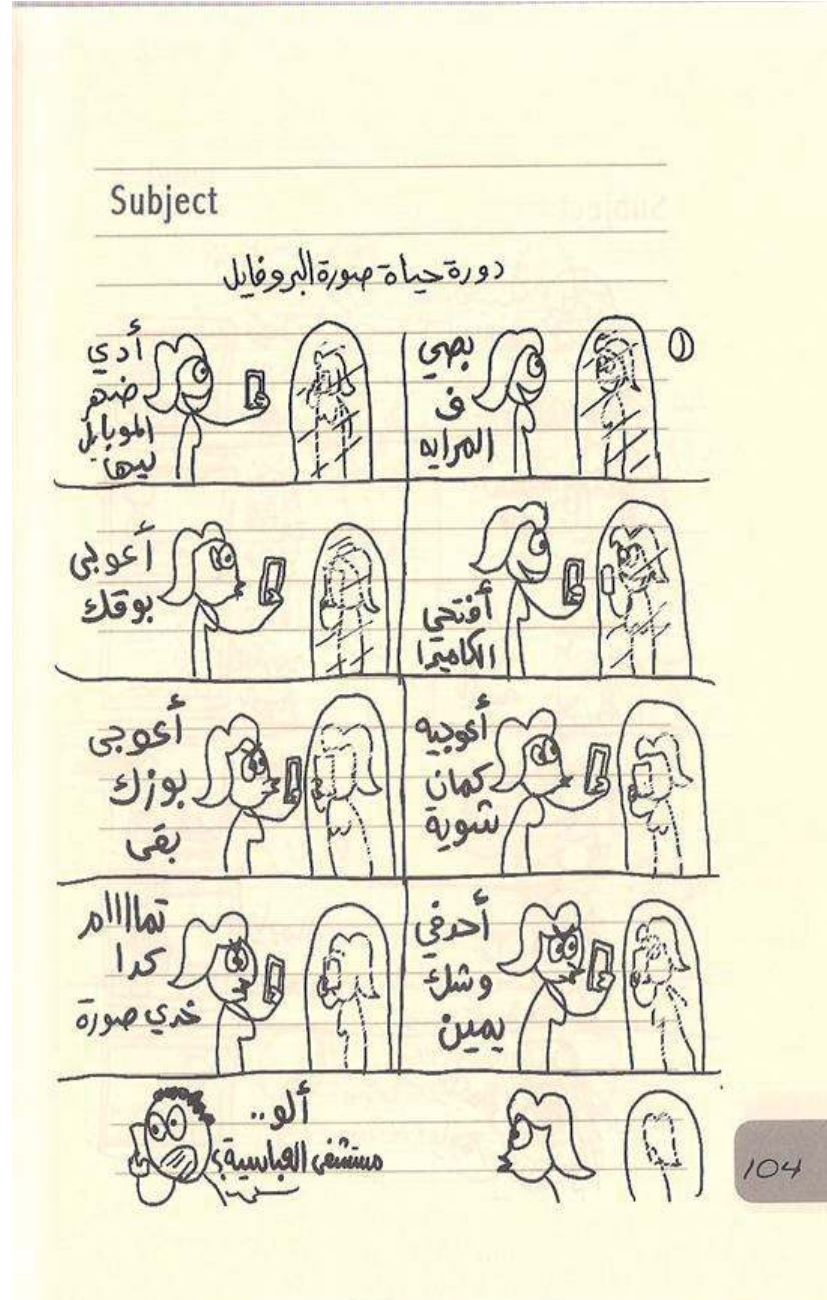 Subject
دورة حياة صورة البروفايل
①
بصي
ف
المرايه
أدي
ضهر
الموبايل
ليها
أفتحي
الكاميرا
أعوجي
بوقك
أعوجيه
كمان
شوية
أعوجى
بوزك
بقى
أحدفي
وشك
يمين
تماااام
كدا
خدي صورة
ألو..
مستشفى العباسية؟
104